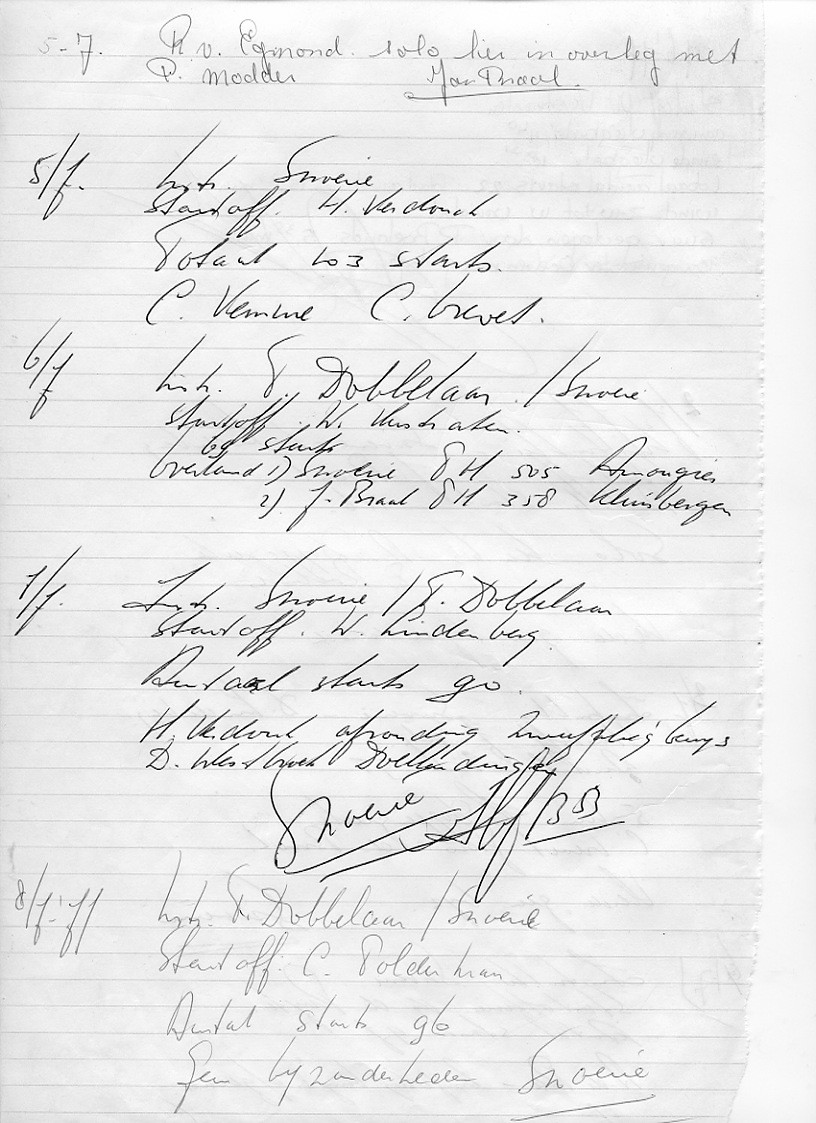 5-7. R v. Egmond. solo hier in overleg met
P. Modder Jan Braal.
5/7. Instr. Snoeie
Startoff. H. Verdonck
Totaal 103 starts.
C. Kemme C. brevet.
6/7 Instr. F. Dobbelaar. / Snoeie
startoff. W. Verstraten.
69 starts
Overland 1) Snoeie PH 505 Amougies
2) J. Braal PH 358 Kluisbergen
7/7. Instr. Snoeie / F. Dobbelaar
Startoff. W. Lindenberg.
Aantal starts 90.
H. Verdonk afronding zweefvliegbewijs
D. Westbroek
Snoeie
8/7-'77 Instr. F. Dobbelaar / Snoeie
Startoff. C. Polderman
Aantal starts 96
Geen byzonderheden Snoeie